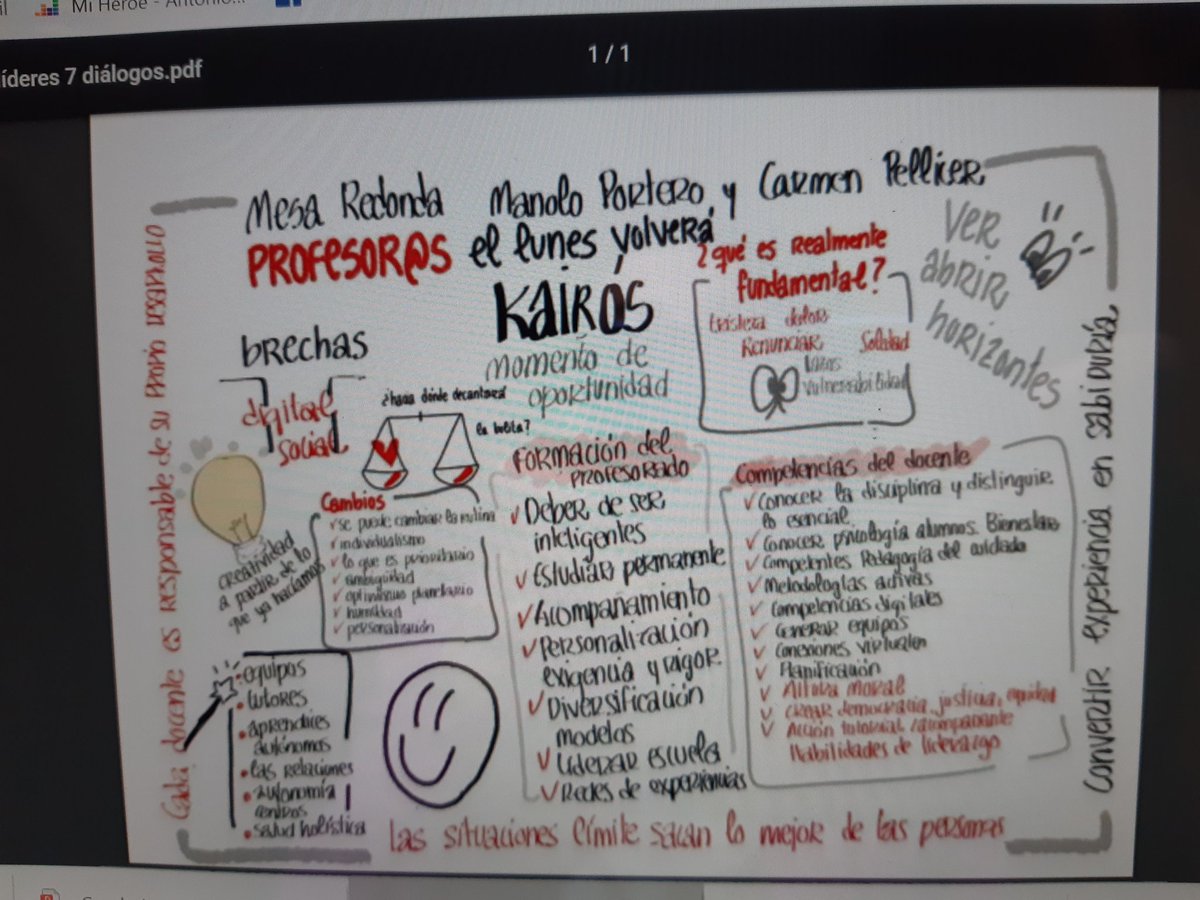 Mi Héroe - Antonio...
íderes 7 diálogos.pdf
1 / 1
Mesa Redonda Manolo Portero y Carmen Pellicer
PROFESOR@S el lunes volverá
KAIRÓS
momento de
oportunidad
¿qué es realmente
fundamental?
tristeza dolor
Renunciar Soledad
lazos
vulnerabilidad
VER
ABRIR
horizontes
brechas
digital
social
¿hacia dónde decantará
la bolita?
creatividad
a partir de lo
que ya hacíamos
Cambios
se puede cambiar la rutina
individualismo
lo que es prioritario
ambigüedad
optimismo planetario
humildad
personalización
equipos
tutores
aprendices
autónomos
las relaciones
autonomía
centros
salud holística
Formación del
profesorado
Deber de ser
inteligentes
Estudiar permanente
Acompañamiento
Personalización
exigencia y rigor
Diversificación
modelos
Liderar escuela
Redes de experiencias
Competencias del docente
Conocer la disciplina y distinguir
lo esencial
Conocer psicología alumnos. Bienestar
Competentes Pedagogía del cuidado
Metodologías activas
Competencias digitales
Generar equipos
Conexiones virtuales
Planificación
Altura moral
Crear democracia, justicia, equidad
Acción tutorial acompañante
Habilidades de liderazgo
Cada docente es responsable de su propio desarrollo
Convertir experiencia en sabiduría
las situaciones límite sacan lo mejor de las personas